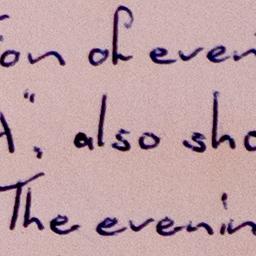 ion of even
A", also sho
The evenin